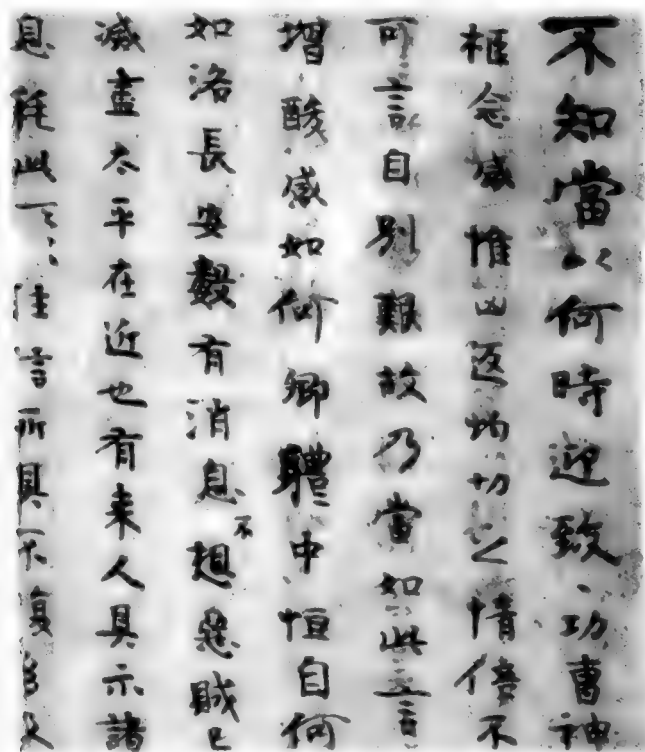 不知當以何時迎致功曹神
柩念感惟返灼切之情倍不
可言自別艱故乃當如此言
增酸感如何卿體中恒自何
如洛長安數有消息不想惡賊已
滅盡太平在近也有来人具示諸
息耗此言所具不復